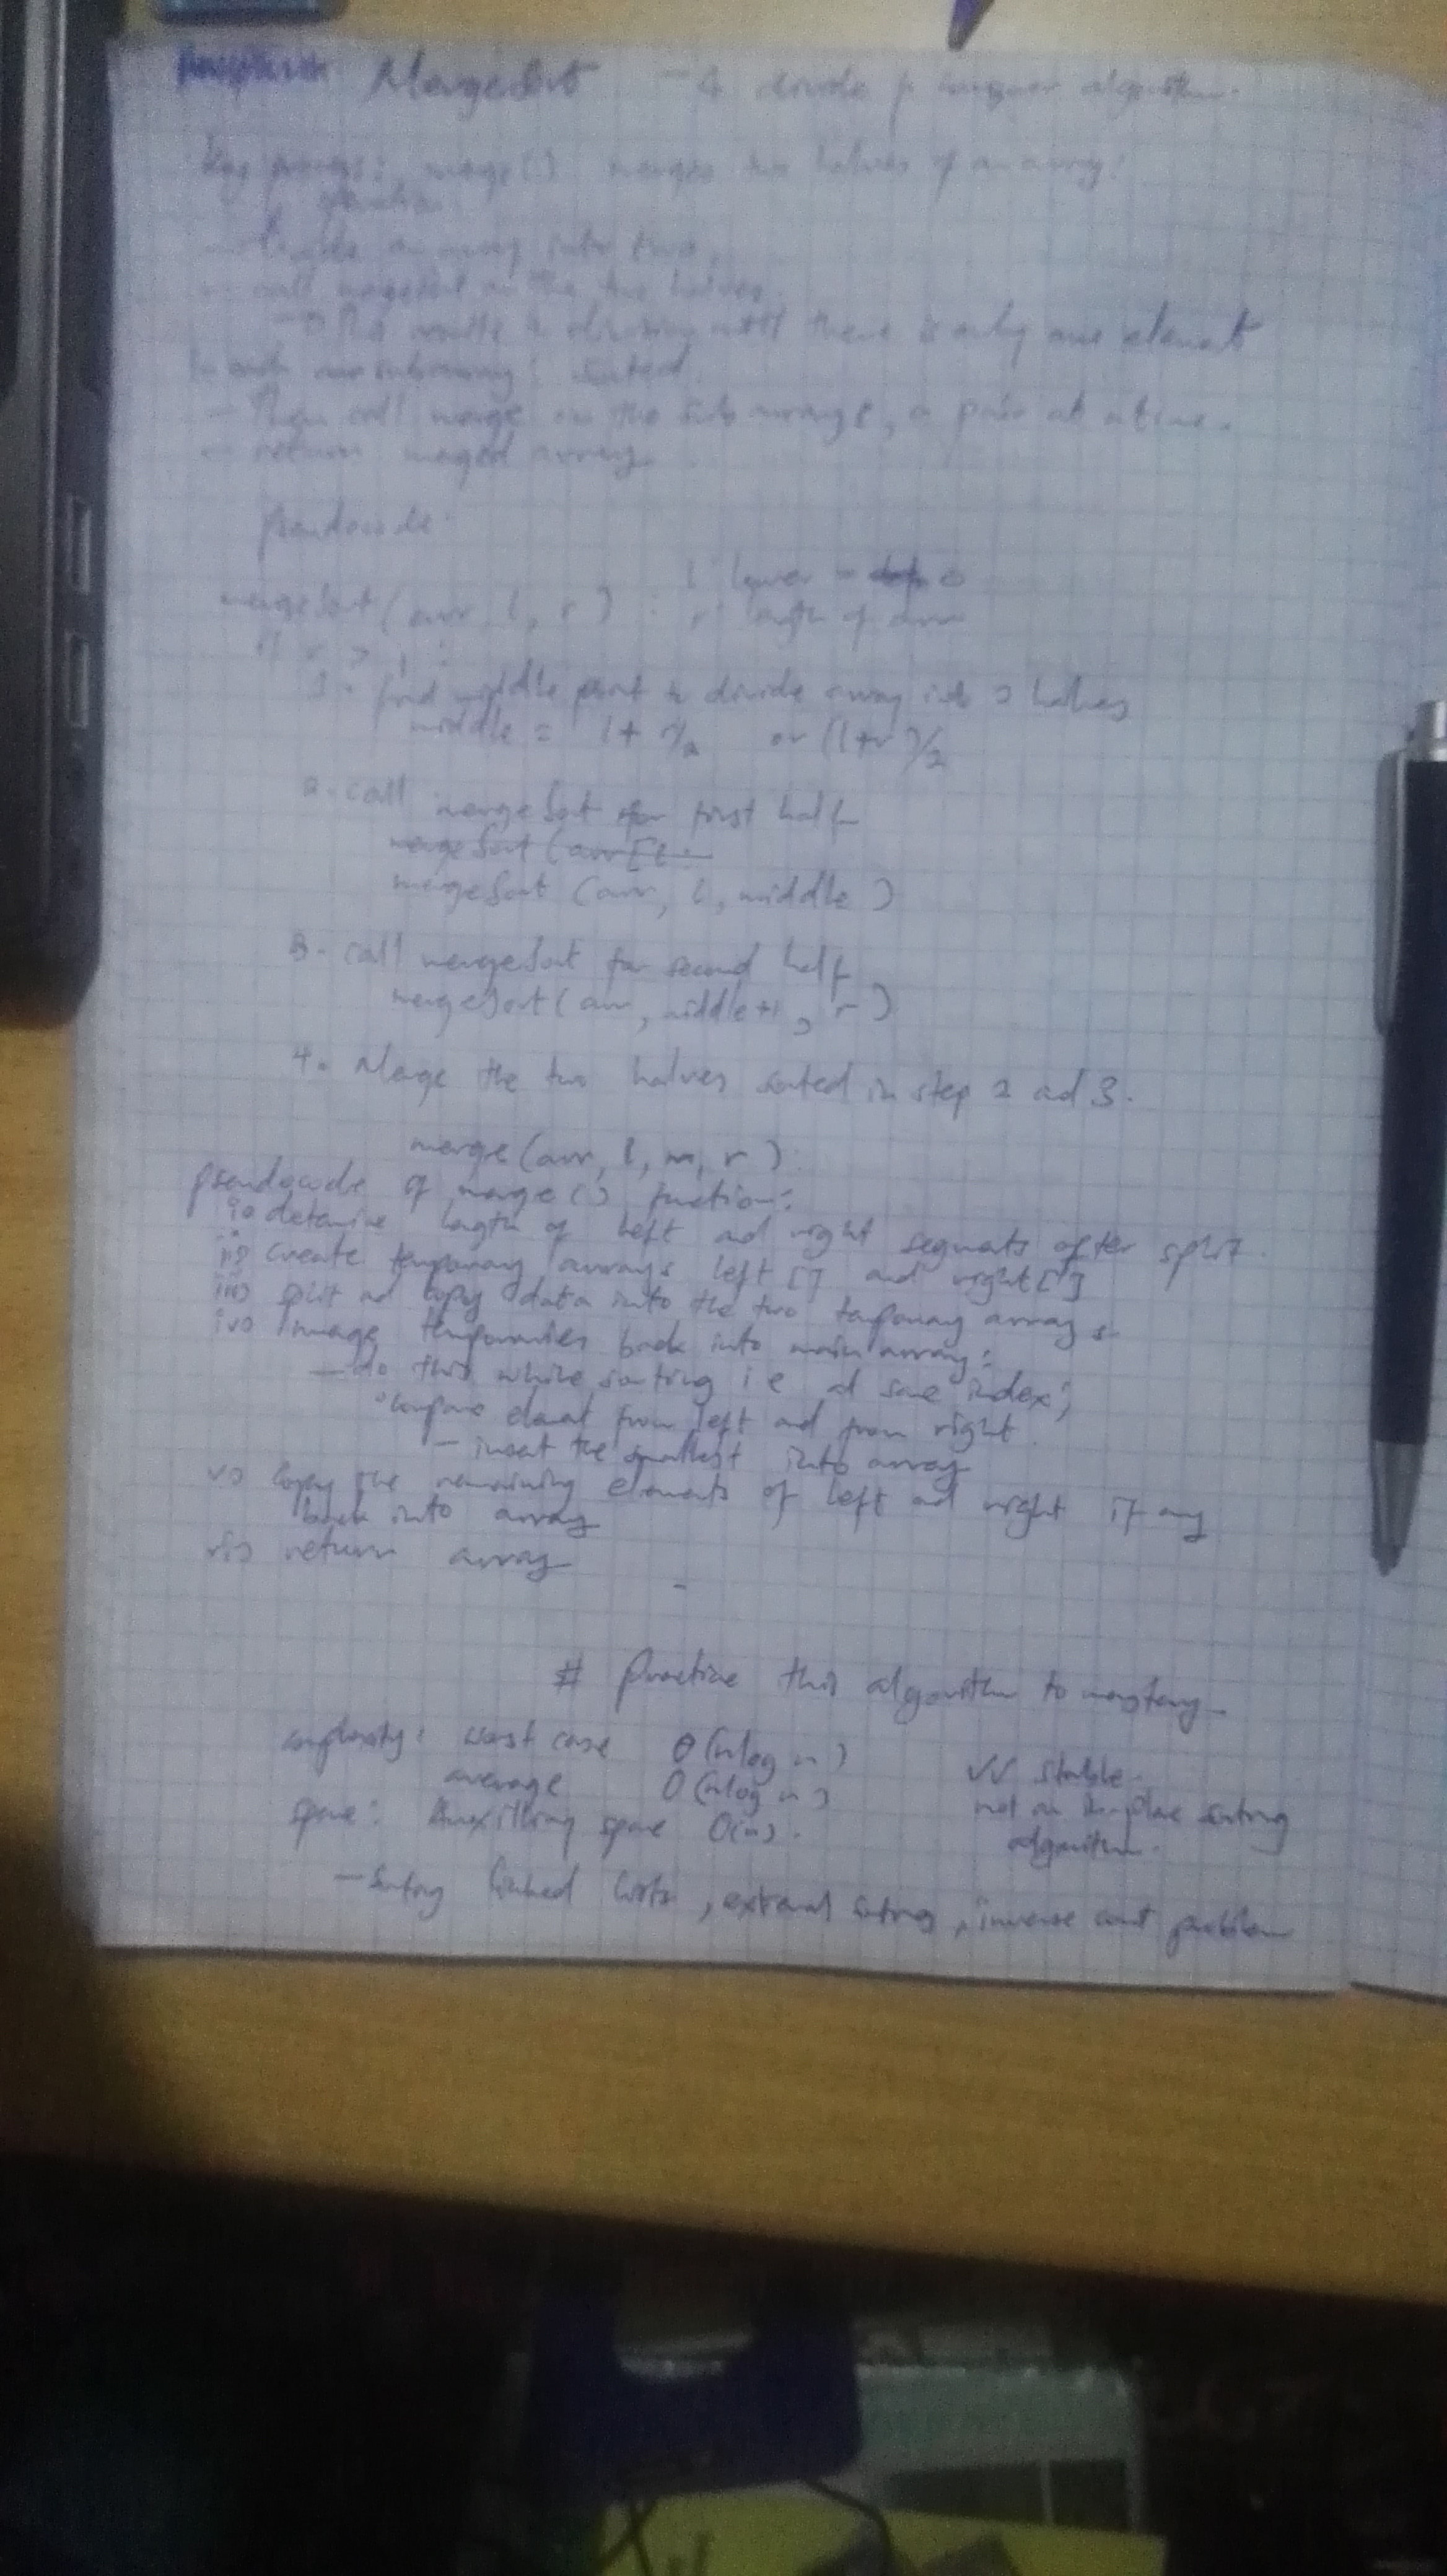 MergeSort - A divide & conquer algorithm.
Key process: merge() merges two halves of an array:
an array into two,
- call mergesort on the two halves
→ this results in dividing until there is only one element
in each subarray: sorted
- Then call merge on the sub arrays, a pair at a time.
- return merged array
pseudocode:
l: lower = 0
mergeSort(arr, l, r) : r: length of arr
if r > l :
1. find middle point to divide array into 2 halves
middle = l + r/2 or (l+r)/2
2. call mergeSort for first half
mergeSort (arr[l
mergeSort (arr, l, middle)
3. call mergeSort for second half
mergeSort(arr, middle+1, r)
4. Merge the two halves sorted in step 2 and 3.
merge(arr, l, m, r)
pseudocode of merge() function:
i) determine length of left and right segments after split.
ii) create temporary arrays left[] and right[]
iii) split and copy data into the two temporary arrays
iv) merge temporaries back into main array:
- do this while sorting i.e at same index;
• compare element from left and from right
- insert the smallest into array
v) copy the remaining elements of left and right if any
back into array
vi) return array
# practice this algorithm to mastery
complexity: worst case θ(nlog n) √√ stable.
average O(nlog n) not an in-place sorting
space: Auxilliary space O(n). algorithm.
- Sorting linked lists, external sorting, inverse count problem